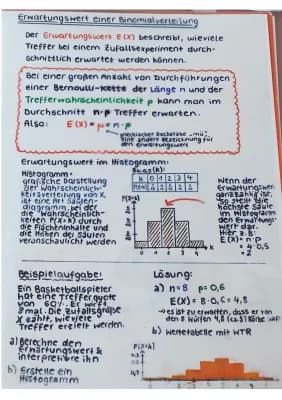 Erwartungswert einer Binomialverteilung
Der Erwartungswert E(X) beschreibt, wieviele
Treffer bei einem Zufallsexperiment durch-
schnittlich erwartet werden können.
Bei einer großen Anzahl von Durchführungen
einer Bernoulli-Kette der Länge n und der
Trefferwahrscheinlichkeit p kann man im
Durchschnitt n·p Treffer erwarten.
Also: E(X) = μ = n·p
griechischer Buchstabe „mü“,
eine andere Bezeichnung für
den Erwartungswert
Erwartungswert im Histogramm:
Histogramm:
grafische Darstellung
der Wahrscheinlich-
keitsverteilung von X,
ist eine Art Säulen-
diagramm, bei der
die Wahrscheinlich-
keiten P(X=k) durch
die Flächeninhalte und
die Höhen der Säulen
veranschaulicht werden
k 0 1 2 3 4
P(X=k)
k
Wenn der
Erwartungswert
ganzzahlig ist,
so stellt die
höchste Säule
im Histogramm
den Erwartungs-
wert dar.
Hier z.B:
E(X) = n·p
= 4·0,5
= 2
Beispielaufgabe:
Ein Basketballspieler
hat eine Trefferquote
von 60%. Er wirft
8 mal. Die Zufallsgröße
X zählt, wieviele
Treffer erzielt werden.
a) Berechne den
Erwartungswert &
interpretiere ihn
b) Erstelle ein
Histogramm
Lösung:
a) n=8 p=0,6
E(X) = 8·0,6 = 4,8
→ es ist zu erwarten, dass er von
den 8 Würfen 4,8 (ca. 5) Körbe
b) Wertetabelle mit WTR
P(X=k)